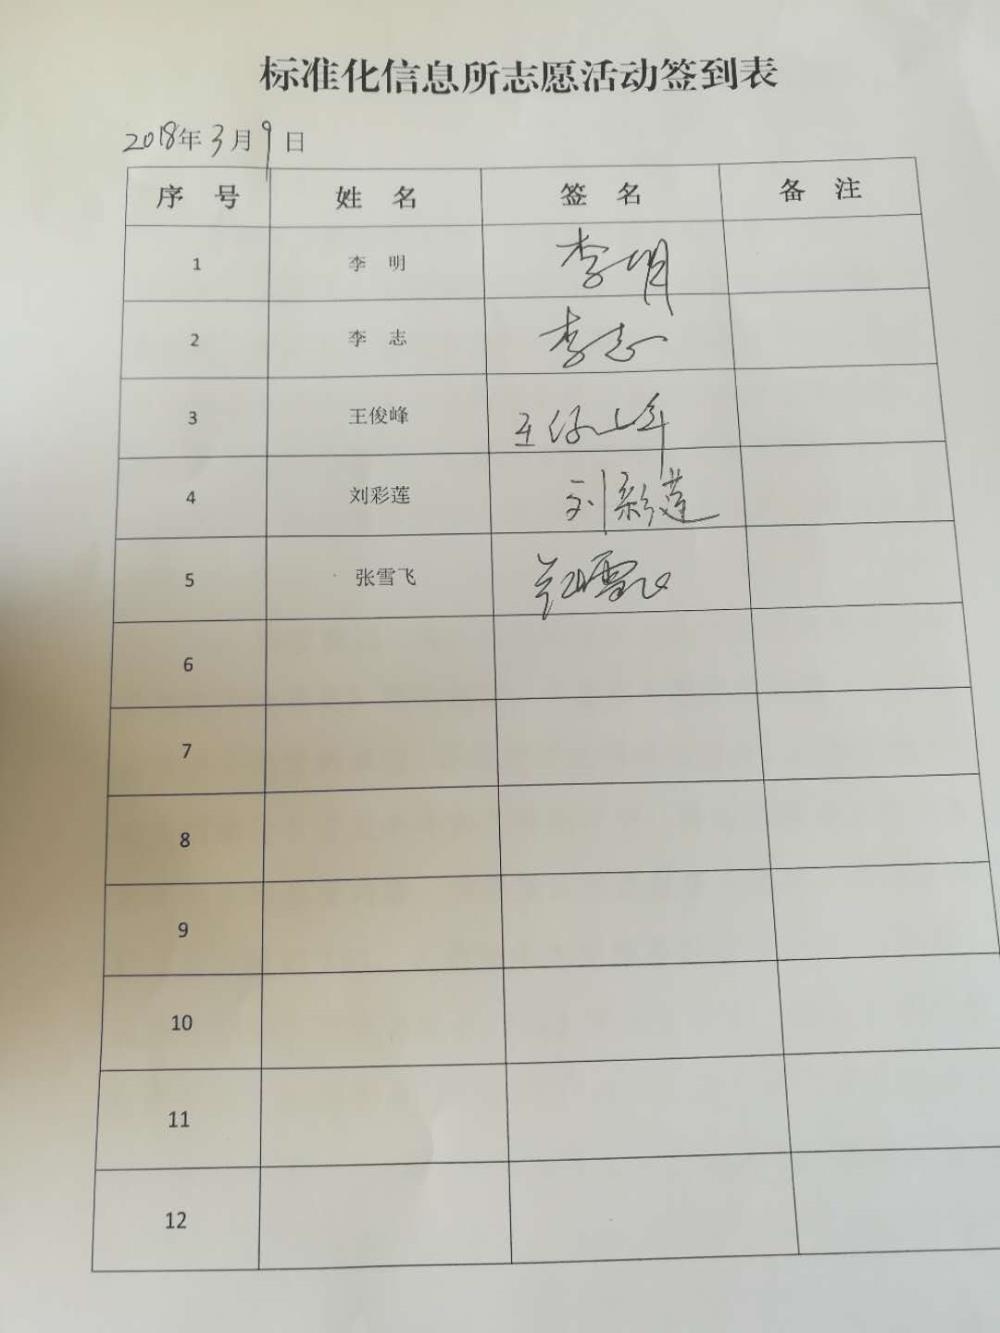 标准化信息所志愿活动签到表
2018年3月9日
序 号 姓 名 签 名 备 注
1 李 明 李明
2 李 志 李志
3 王俊峰 王俊峰
4 刘彩莲 刘彩莲
5 张雪飞 张雪飞
6
7
8
9
10
11
12